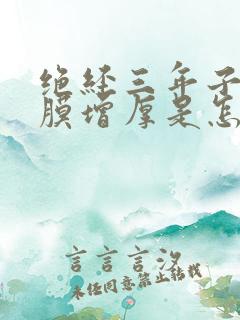 绝经三年子
膜增厚是怎
言言言沙
未经同意禁止转载